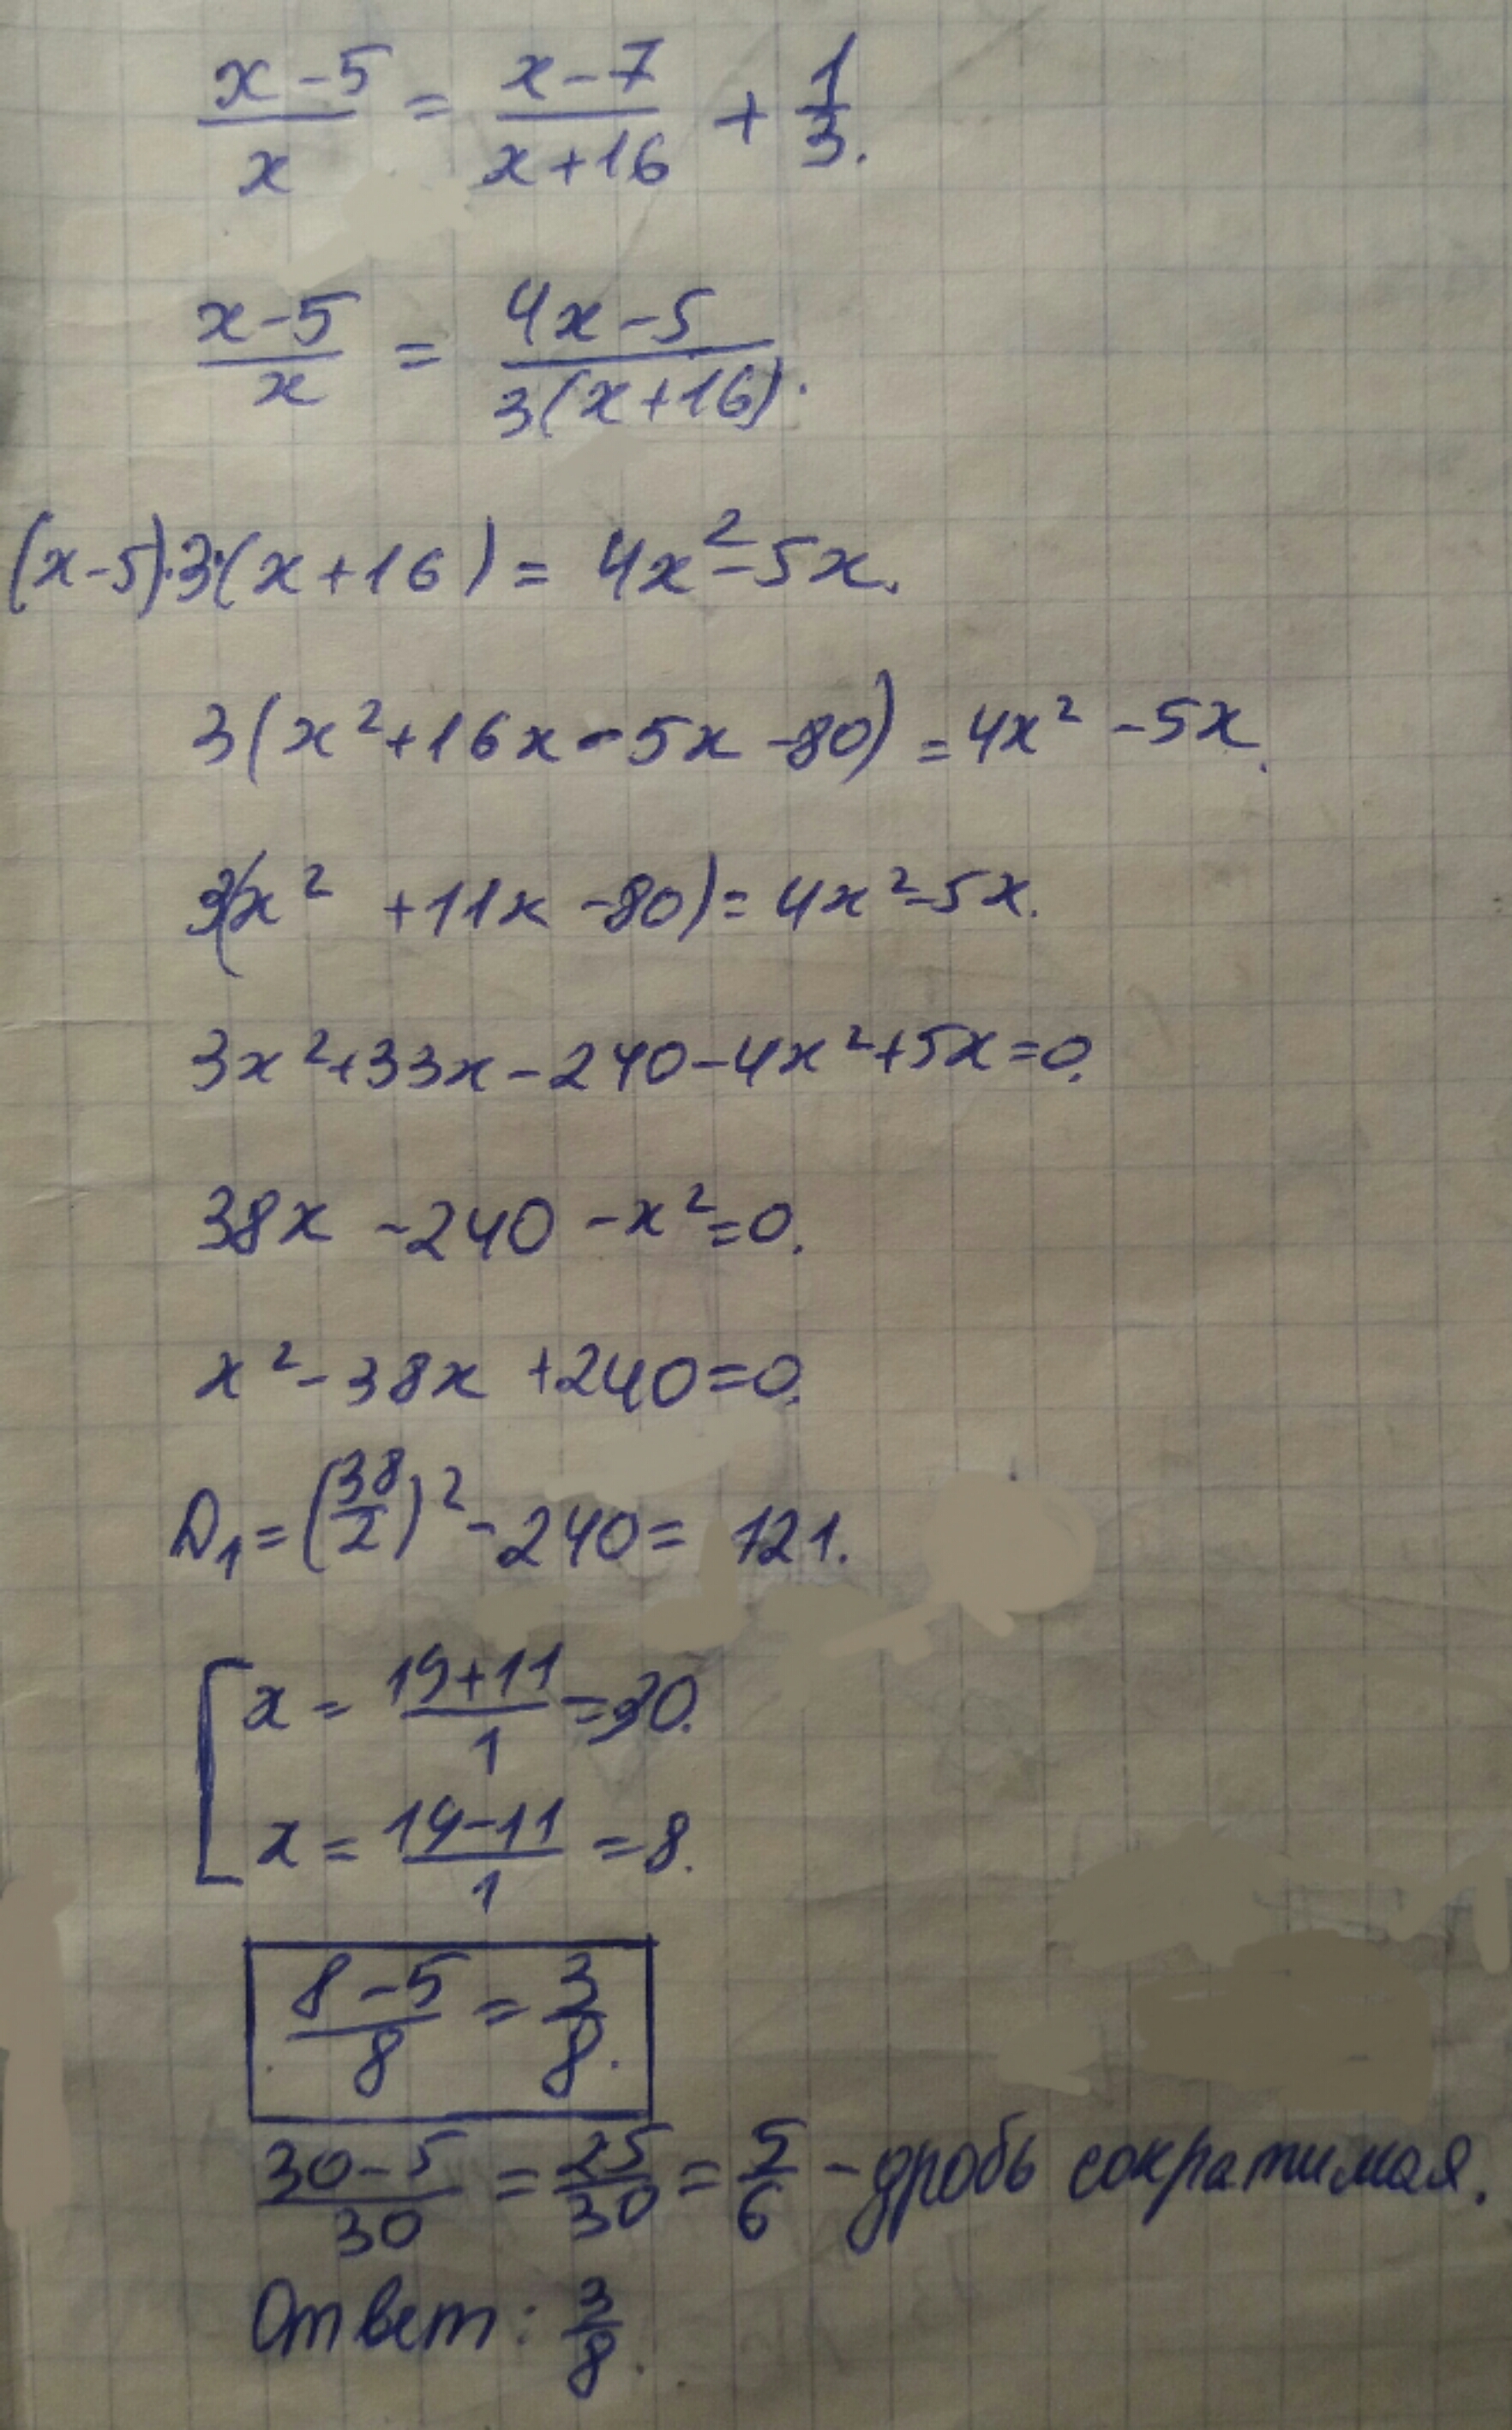 (x-5)/x = (x-7)/(x+16) + 1/3.
(x-5)/x = (4x-5)/(3(x+16)).
(x-5)·3·(x+16) = 4x²-5x.
3(x²+16x-5x-80) = 4x²-5x.
3(x²+11x-80) = 4x²-5x.
3x²+33x-240-4x²+5x=0.
38x-240-x²=0.
x²-38x+240=0.
D₁=(38/2)²-240= 121.
[x = (19+11)/1 =30.
x = (19-11)/1 =8.
(8-5)/8 = 3/8.
(30-5)/30 = 25/30 = 5/6 - дробь сократимая.
Ответ: 3/8.